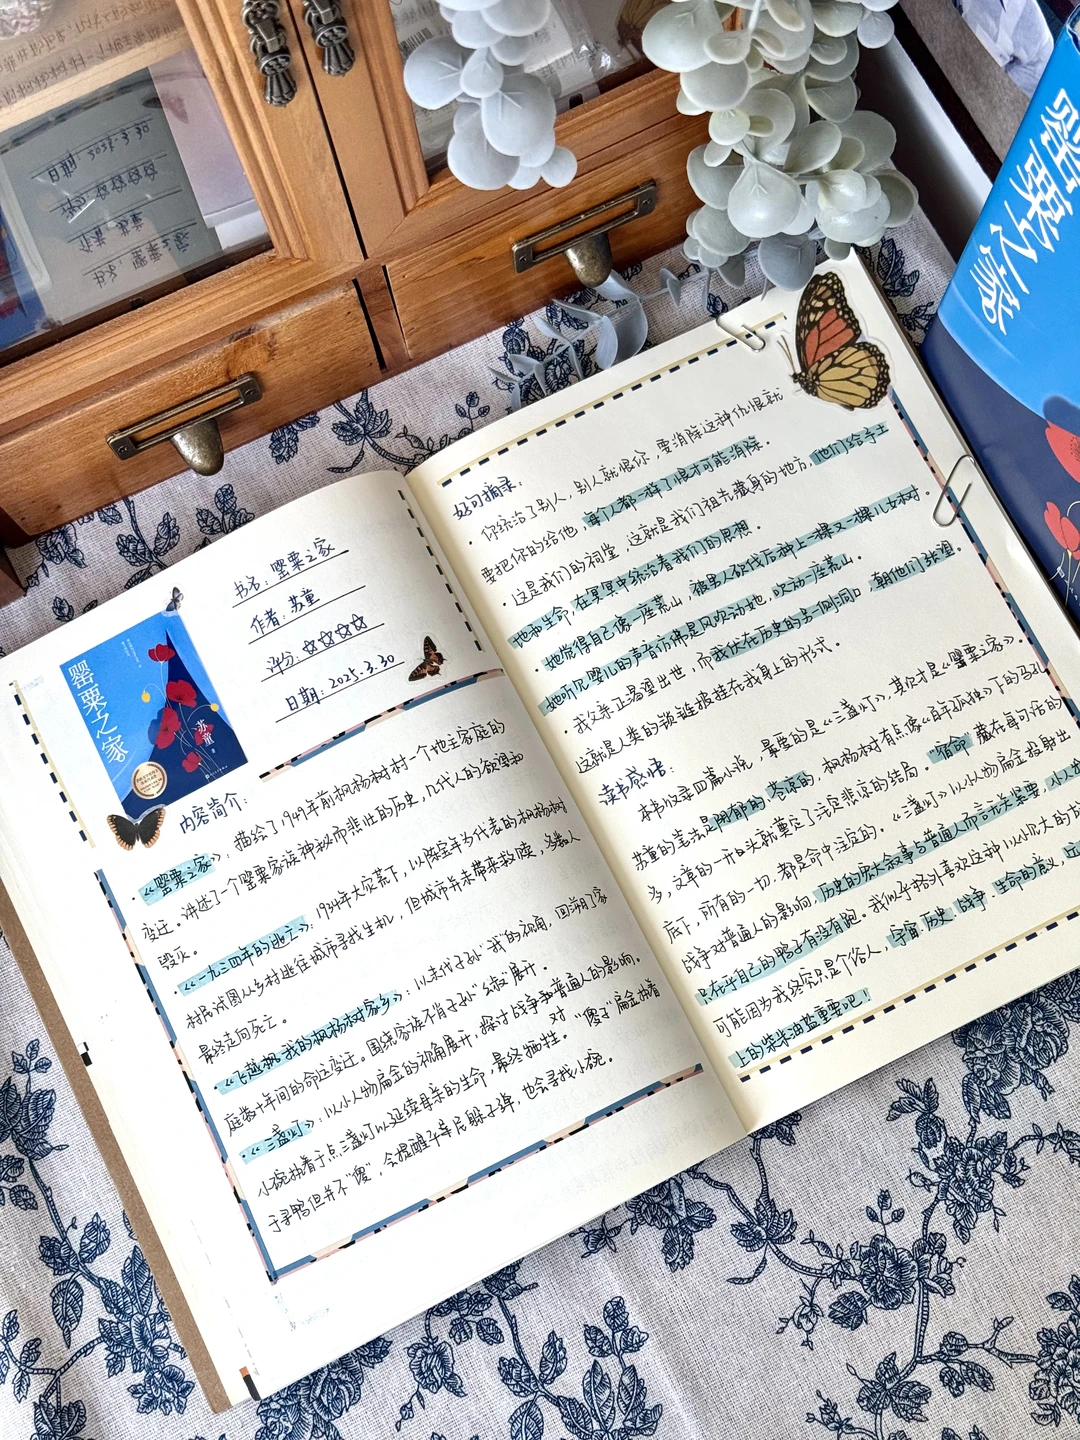 书名：罂粟之家
作者：苏童
评分：
日期：2025.3.30
罂粟之家
苏童
著
内容简介：
·《罂粟之家》：描绘了1949年前枫杨树村一个地主家庭的
变迁。讲述了一个罂粟家族神秘而悲壮的历史，几代人的欲望和
毁灭。
·《一九三四年的逃亡》：1934年大灾荒下，以陈宝年为代表的枫杨树
村民试图从乡村逃往城市寻找生机，但城市并未带来救赎，多数人
最终走向死亡。
·《飞越我的枫杨树家乡》：以末代子孙“我”的视角，回溯了家
庭数十年间的命运变迁。围绕家族不肖子孙“幺叔”展开。
·《三盏灯》：以小人物扁金的视角展开，探讨战争对普通人的影响。
小碗执着于点三盏灯以延续母亲的生命，最终牺牲。“傻子”扁金执着
于寻鸭但并不“傻”，会提醒士兵尸躲子弹，也会寻找小碗。
好句摘录：
·你统治了别人，别人就恨你，要消除这种仇恨就
要把你的给他，每个人都一样了恨才可能消除。
·这是我们的祠堂，这就是我们祖先藏身的地方，他们给予土
地和生命，在冥冥中统治着我们的思想。
·她觉得自己像一座荒山，被男人砍伐后种上一棵又一棵儿女树。
她听见婴儿的声音仿佛是风吹动她，吹动一座荒山。
·我父亲正渴望出世，而我伏在历史的另一侧洞口，朝他们张望。
这就是人类的锁链被挂在我身上的形式。
读书感悟：
本书收录四篇小说，最爱的是《三盏灯》，其次才是《罂粟之家》。
苏童的笔法是阴郁的、苍凉的，枫杨树有点像《百年孤独》下的马孔
多，文章的一开头就奠定了注定悲凉的结局。“宿命”藏在每句话的
底下，所有的一切，都是命中注定的。《三盏灯》以小人物扁金投射出
战争对普通人的影响，历史的宏大叙事与普通人而言无关紧要，小人物
只在乎自己的鸭子有没有跑。我似乎格外喜欢这种以小见大的
可能因为我终究只是个俗人，宇宙、历史、战争、生命的意义，
上的柴米油盐重要吧！
罂粟之家
日期 2025.3.30